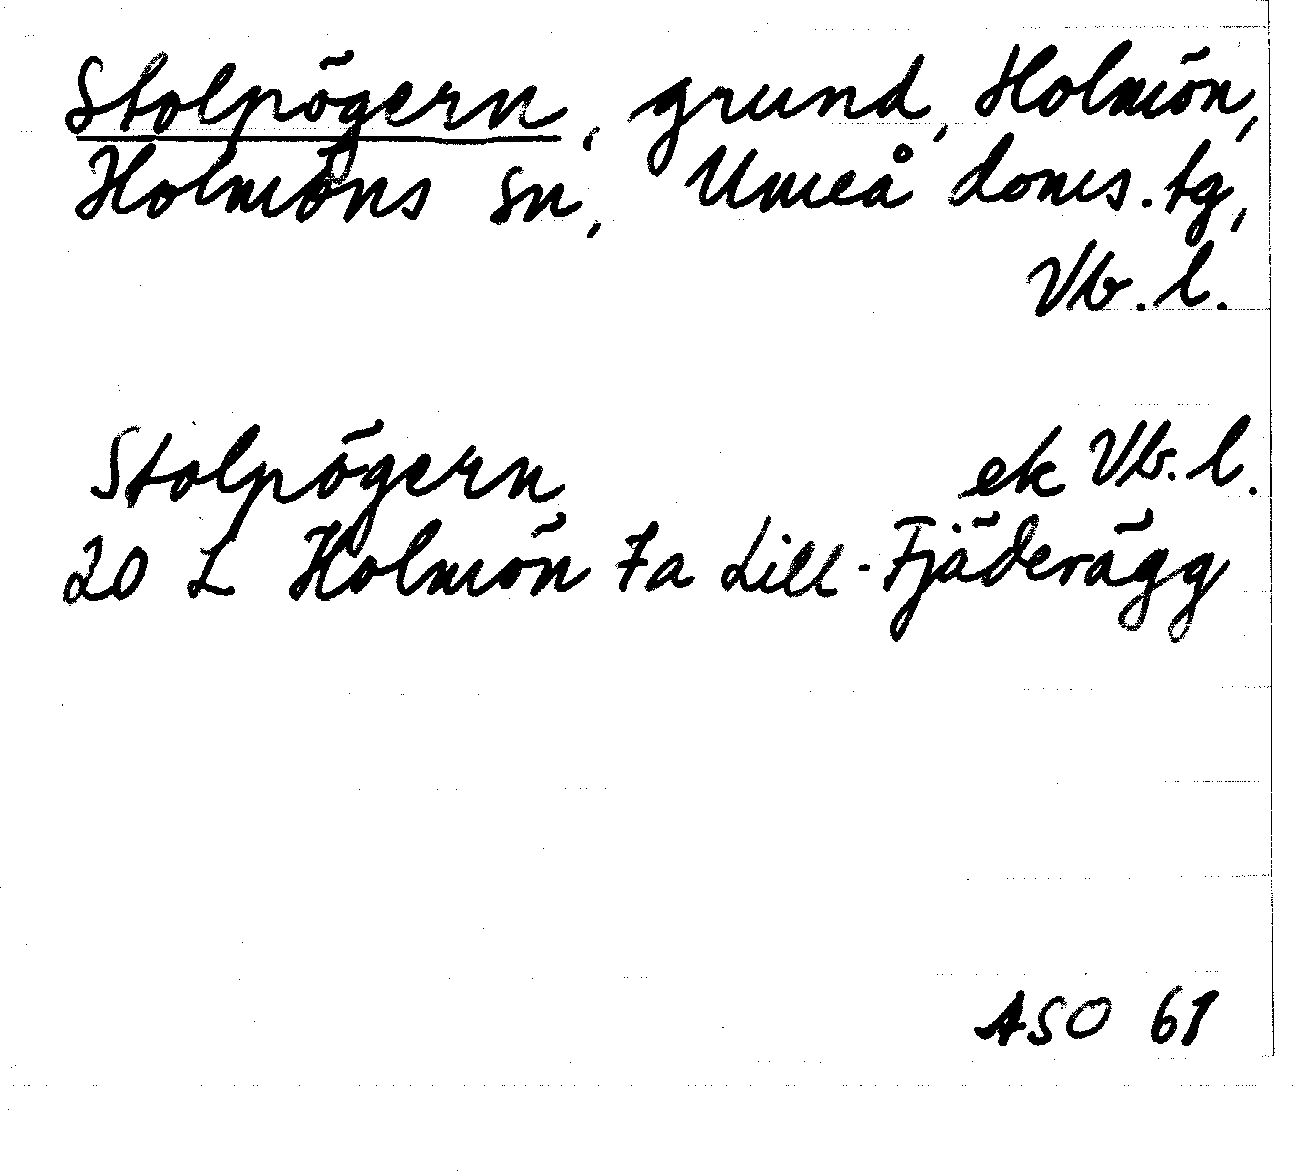 Stolpögern, grund, Holmön,
Holmöns sn, Umeå doms.tg,
Vb.l.
Stolpögern ek Vb.l.
20 L Holmön 7a Lill-Fjäderägg
ASO 61